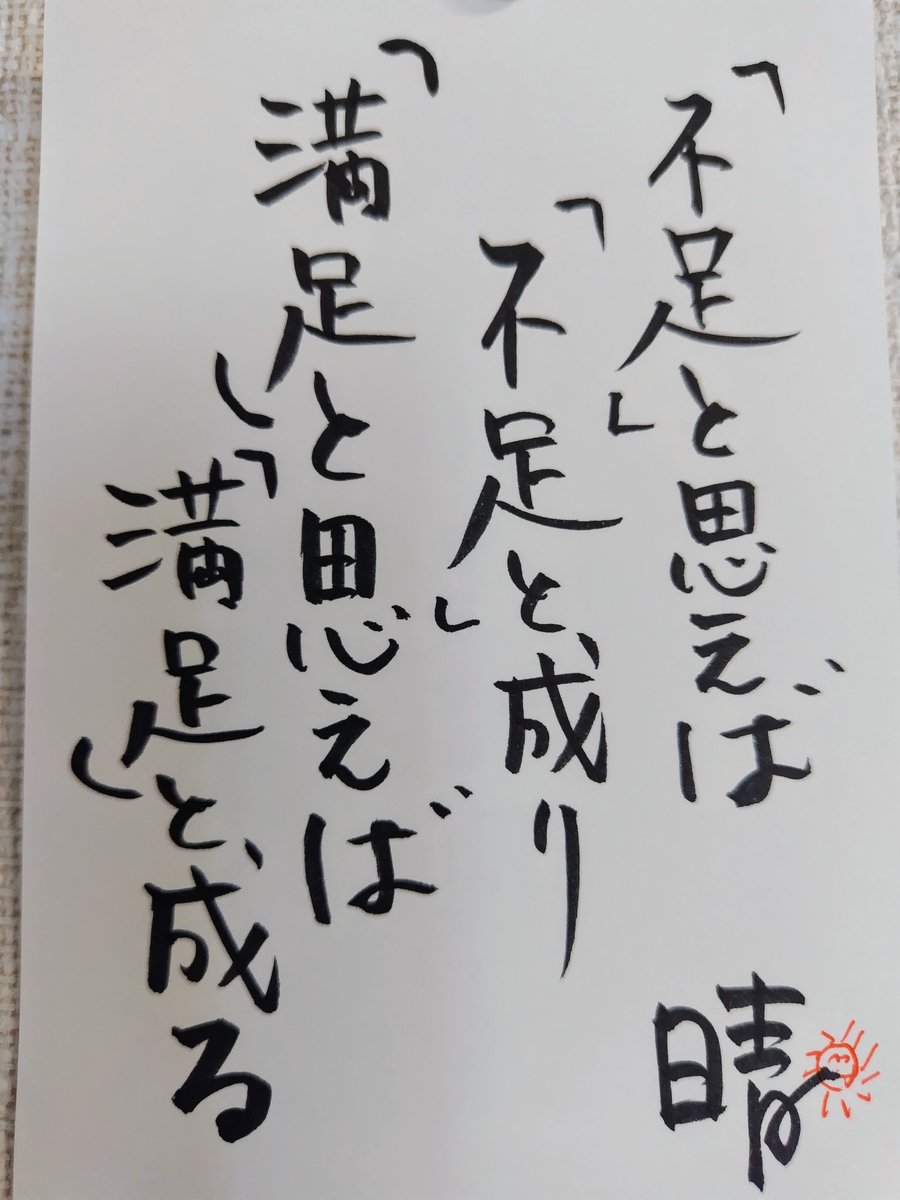 「不足」と思えば
「不足」と、成り
「満足」と思えば
「満足」と、成る
晴